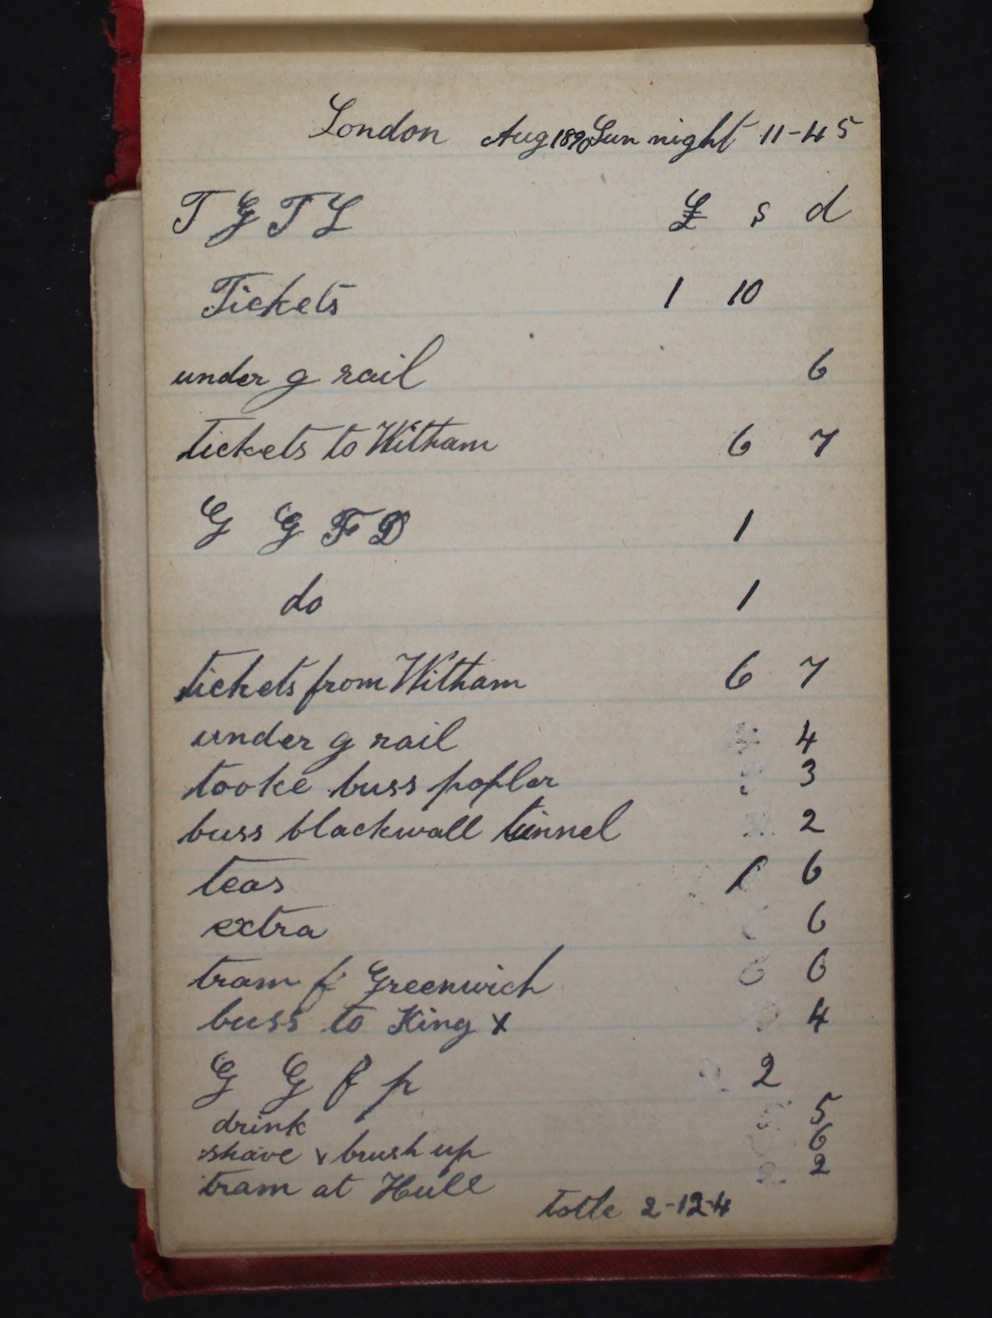 London Aug 1890 Sun night 11-45
T G T L £ s d
Tickets 1 10
under g rail 6
tickets to Witham 6 7
G G F D 1
do 1
tickets from Witham 6 7
under g rail 4
tooke buss popler 3
buss blackwall tunnel 2
teas 1 6
extra 6
tram f Greenwich 6
buss to King x 4
G G f p 2
drink 5
shave & brush up 6
tram at Hull 2
totle 2-12-4